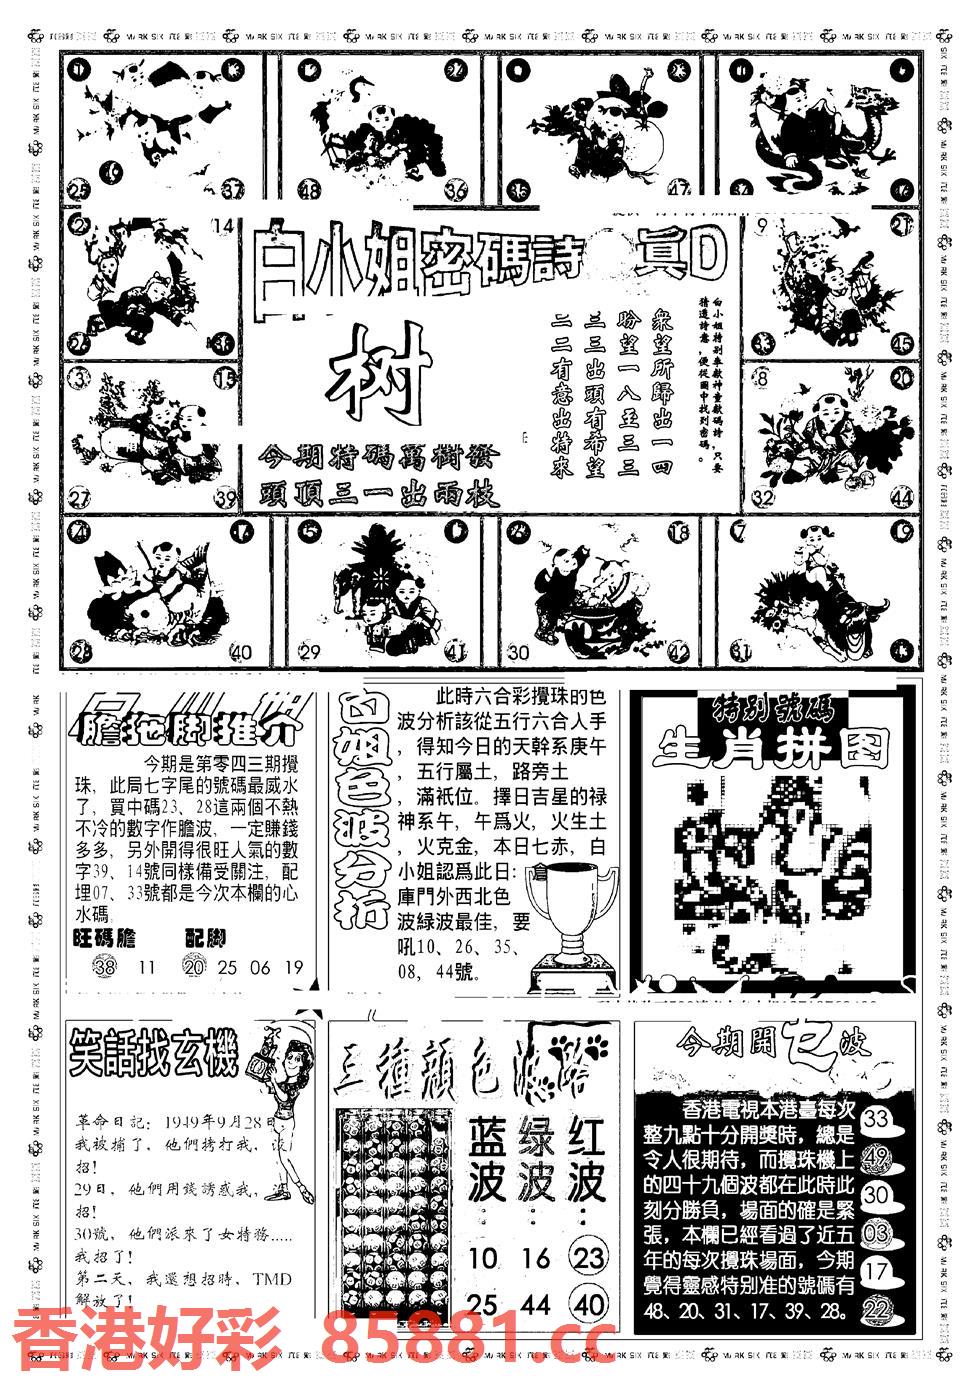 25
37
48
36
35
47
2
14
26
38
白小姐密碼詩
真D
9
21
33
45
树
今期特碼萬樹發
頭頂三一出兩枝
眾望所歸出一四
盼望一八至三三
三三出頭有希望
二二有意出特來
白小姐特别奉獻神童獻碼詩,只要
猜透詩意,便從圖中找到密碼。
3
15
27
39
8
20
32
44
28
40
5
29
41
18
30
42
7
19
31
膽拖脚推介
今期是第零四三期攪
珠，此局七字尾的號碼最威水
了，買中碼23、28這兩個不熱
不冷的數字作膽波，一定賺錢
多多，另外開得很旺人氣的數
字39、14號同樣備受關注，配
埋07、33號都是今次本欄的心
水碼，
旺碼膽 配脚
38 11 20 25 06 19
白姐色波分析
此時六合彩攪珠的色
波分析該從五行六合人手
，得知今日的天幹系庚午
，五行屬土，路旁土
，滿衹位。擇日吉星的禄
神系午，午爲火，火生土
，火克金，本日七赤，白
小姐認爲此日：倉
庫門外西北色
波綠波最佳，要
吼10、26、35、
08，44號。
特别號碼
生肖拼图
笑話找玄機
革命日記：1949年9月28日
我被捕了，他們拷打我，没
招！
29日，他們用錢誘惑我，没
招！
30號，他們派來了女特務.....
我招了！
第二天，我還想招時，TMD
解放了！
三種顏色波路
蓝波： 绿波： 红波：
10 16 23
25 44 40
今期開乜波
香港電視本港臺每次
整九點十分開獎時，總是
令人很期待，而攪珠機上
的四十九個波都在此時此
刻分勝負，場面的確是緊
張，本欄已經看過了近五
年的每次攪珠場面，今期
覺得靈感特别准的號碼有
48、20、31、17、39、28。
33
49
30
03
17
22
香港好彩 85881.cc